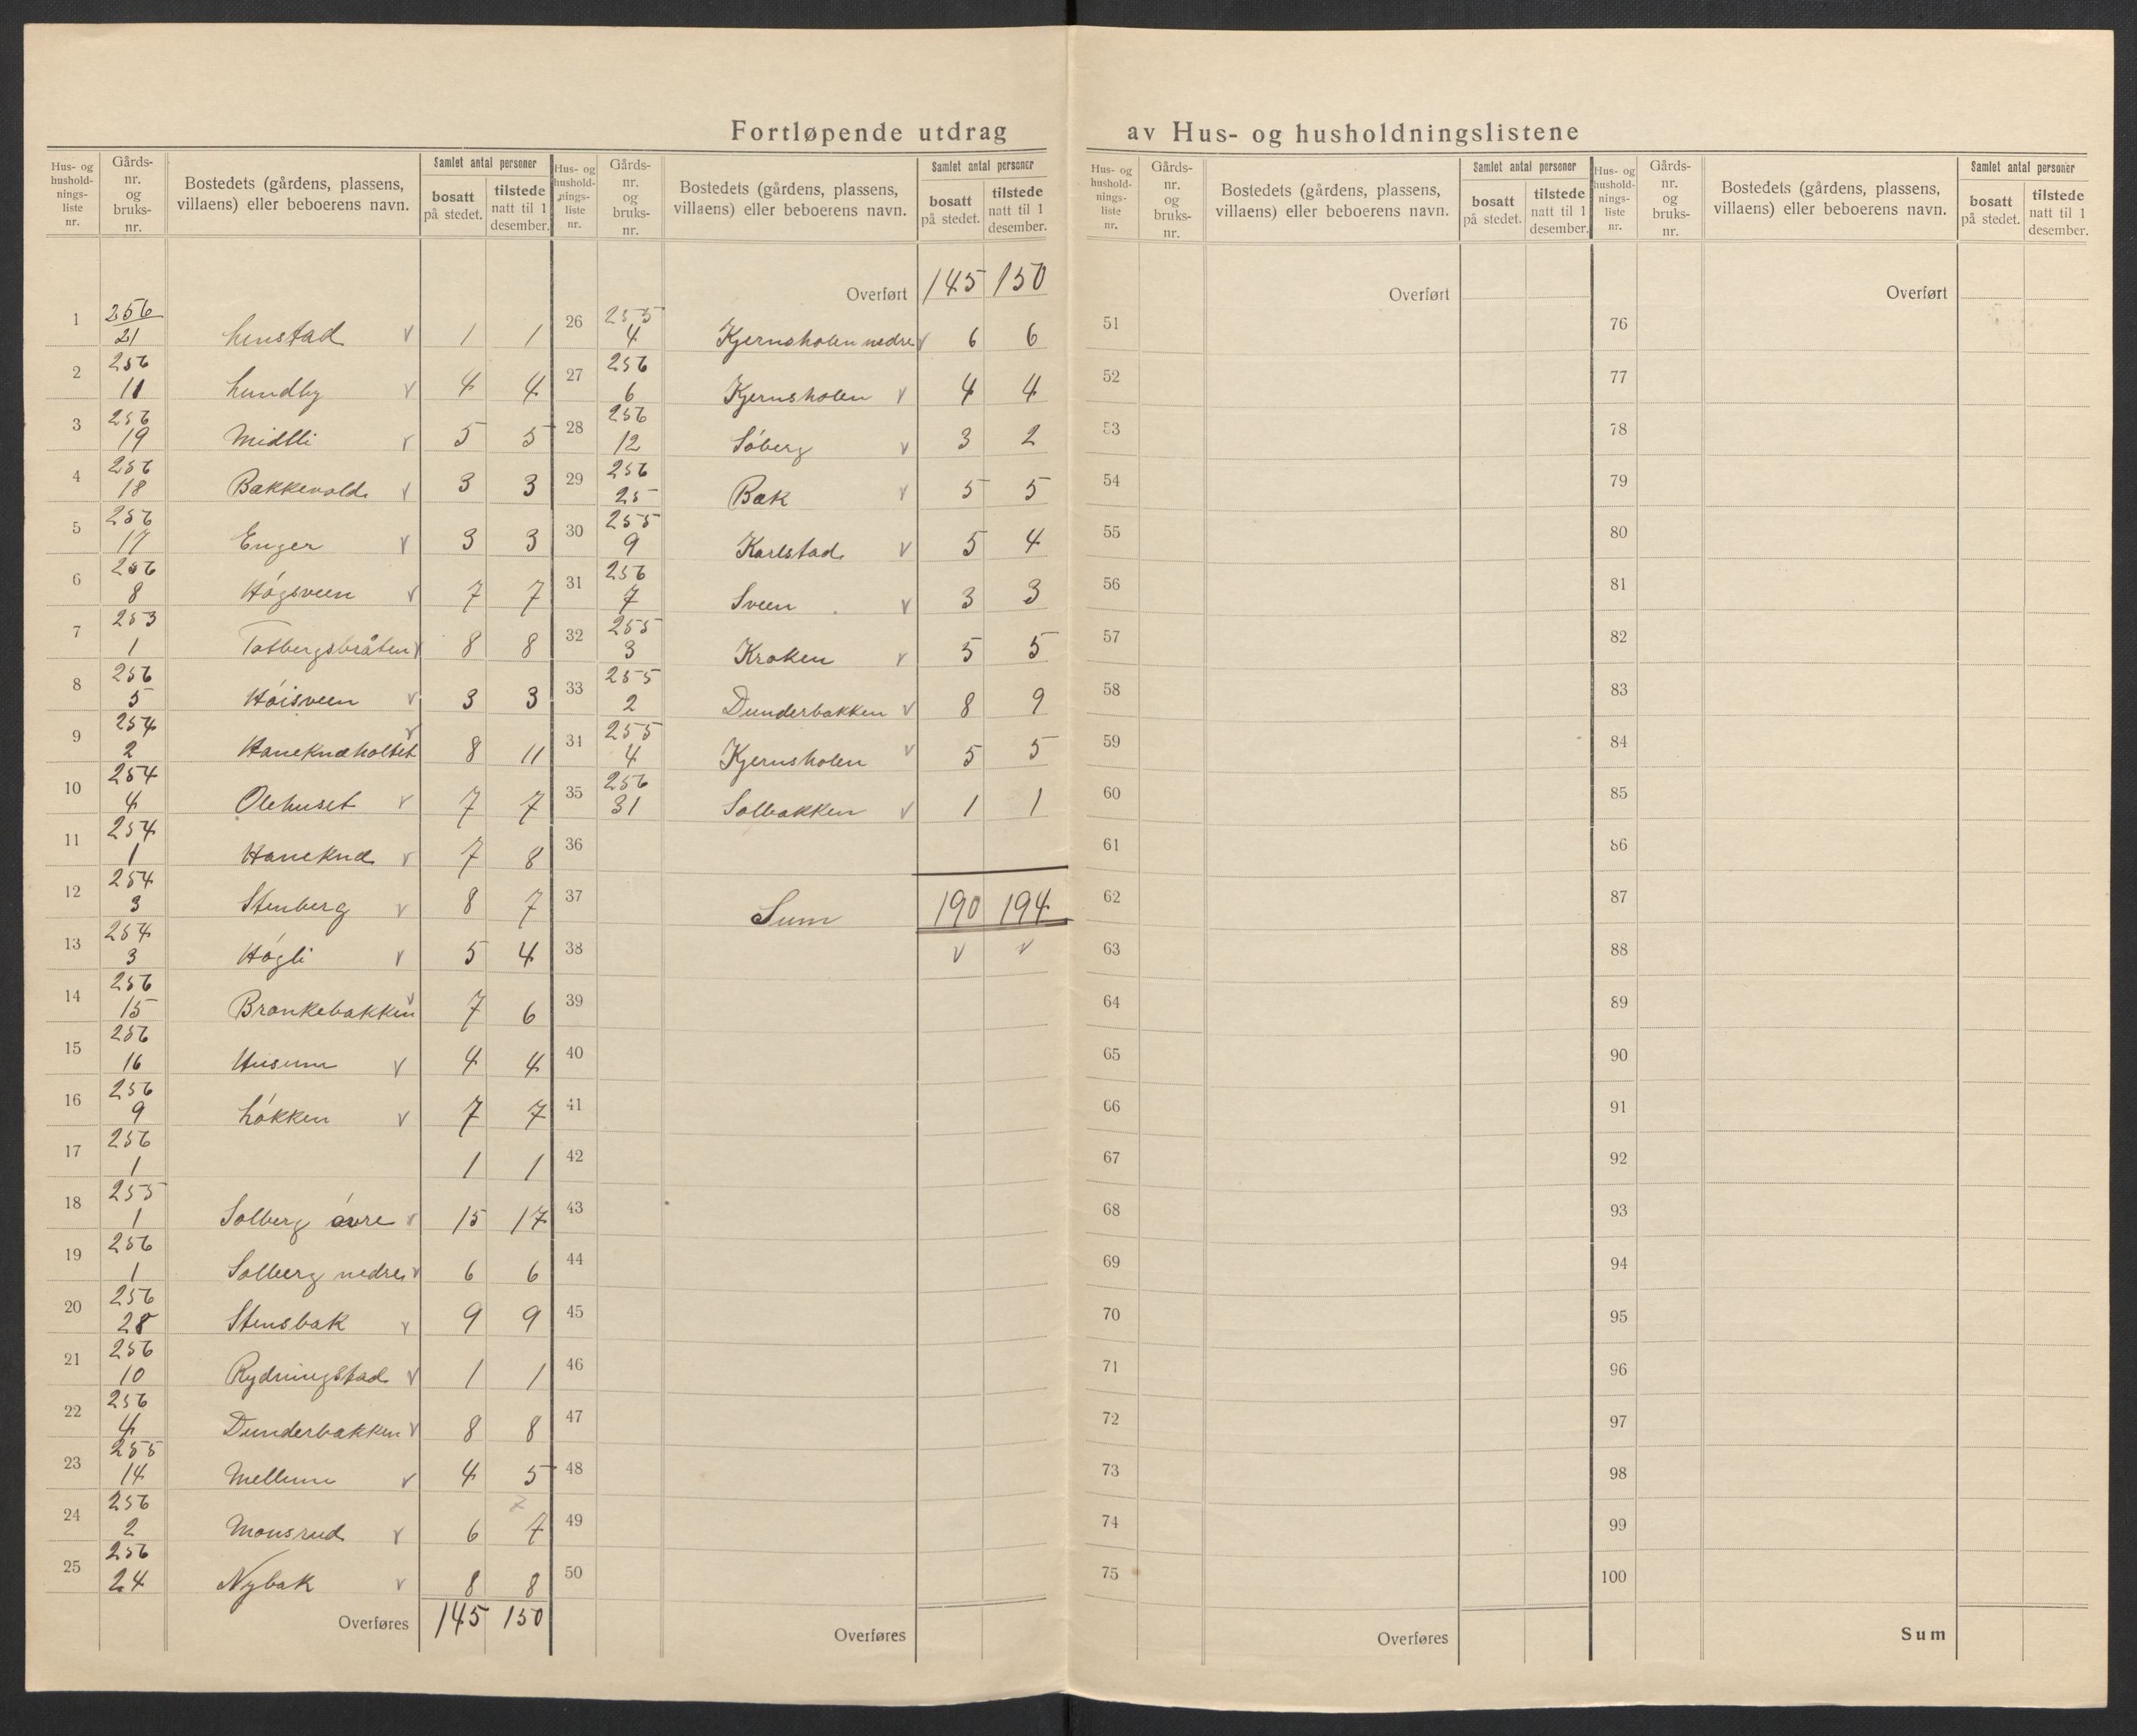 Fortløpende utdrag av Hus- og husholdningslistene
Hus- og husholdnings-liste nr. | Gårds-nr. og bruks-nr. | Bostedets (gårdens, plassens, villaens) eller beboerens navn. | Samlet antal personer | bosatt på stedet. | tilstede natt til 1 desember.
1 256/21 Linstad v 1 1
2 256/11 Lundby v 4 4
3 256/19 Midlli v 5 5
4 256/18 Bakkevold v 3 3
5 256/17 Enger v 3 3
6 256/8 Høgsveen v 7 7
7 253/1 Tosbergsbråten v 8 8
8 256/5 Høisveen v 3 3
9 254/2 Haneknæholtet v 8 11
10 254/4 Olehuset v 7 7
11 254/1 Haneknæ v 7 8
12 254/3 Stenberg v 8 7
13 254/3 Høgli v 5 4
14 256/15 Brankebakken v 7 6
15 256/16 Husum v 4 4
16 256/9 Løkken v 7 7
17 256/1 1 1
18 255/1 Solberg øvre v 15 17
19 256/1 Solberg nedre v 6 6
20 256/28 Stensbak v 9 9
21 256/10 Rydningstad v 1 1
22 256/4 Dunderbakken v 8 8
23 255/14 Mellum v 4 5
24 256/2 Monsrud v 6 7
25 256/24 Nybak v 8 8
Overføres 145 150
Hus- og husholdnings-liste nr. | Gårds-nr. og bruks-nr. | Bostedets (gårdens, plassens, villaens) eller beboerens navn. | Samlet antal personer | bosatt på stedet. | tilstede natt til 1 desember.
Overført 145 150
26 255/4 Kjernsholen nedre v 6 6
27 256/6 Kjernsholen v 4 4
28 256/12 Søberg v 3 2
29 256/25 Bæk v 5 5
30 255/9 Karlstad v 5 4
31 256/7 Sveen v 3 3
32 255/3 Kroken v 5 5
33 255/2 Dunderbakken v 8 9
34 255/4 Kjernsholen v 5 5
35 256/31 Solbakken v 1 1
36
37 Sum 190 194
38 v v
39
40
41
42
43
44
45
46
47
48
49
50
Overføres
Hus- og husholdnings-liste nr. | Gårds-nr. og bruks-nr. | Bostedets (gårdens, plassens, villaens) eller beboerens navn. | Samlet antal personer | bosatt på stedet. | tilstede natt til 1 desember.
Overført
51
52
53
54
55
56
57
58
59
60
61
62
63
64
65
66
67
68
69
70
71
72
73
74
75
Overføres
Hus- og husholdnings-liste nr. | Gårds-nr. og bruks-nr. | Bostedets (gårdens, plassens, villaens) eller beboerens navn. | Samlet antal personer | bosatt på stedet. | tilstede natt til 1 desember.
Overført
76
77
78
79
80
81
82
83
84
85
86
87
88
89
90
91
92
93
94
95
96
97
98
99
100
Sum